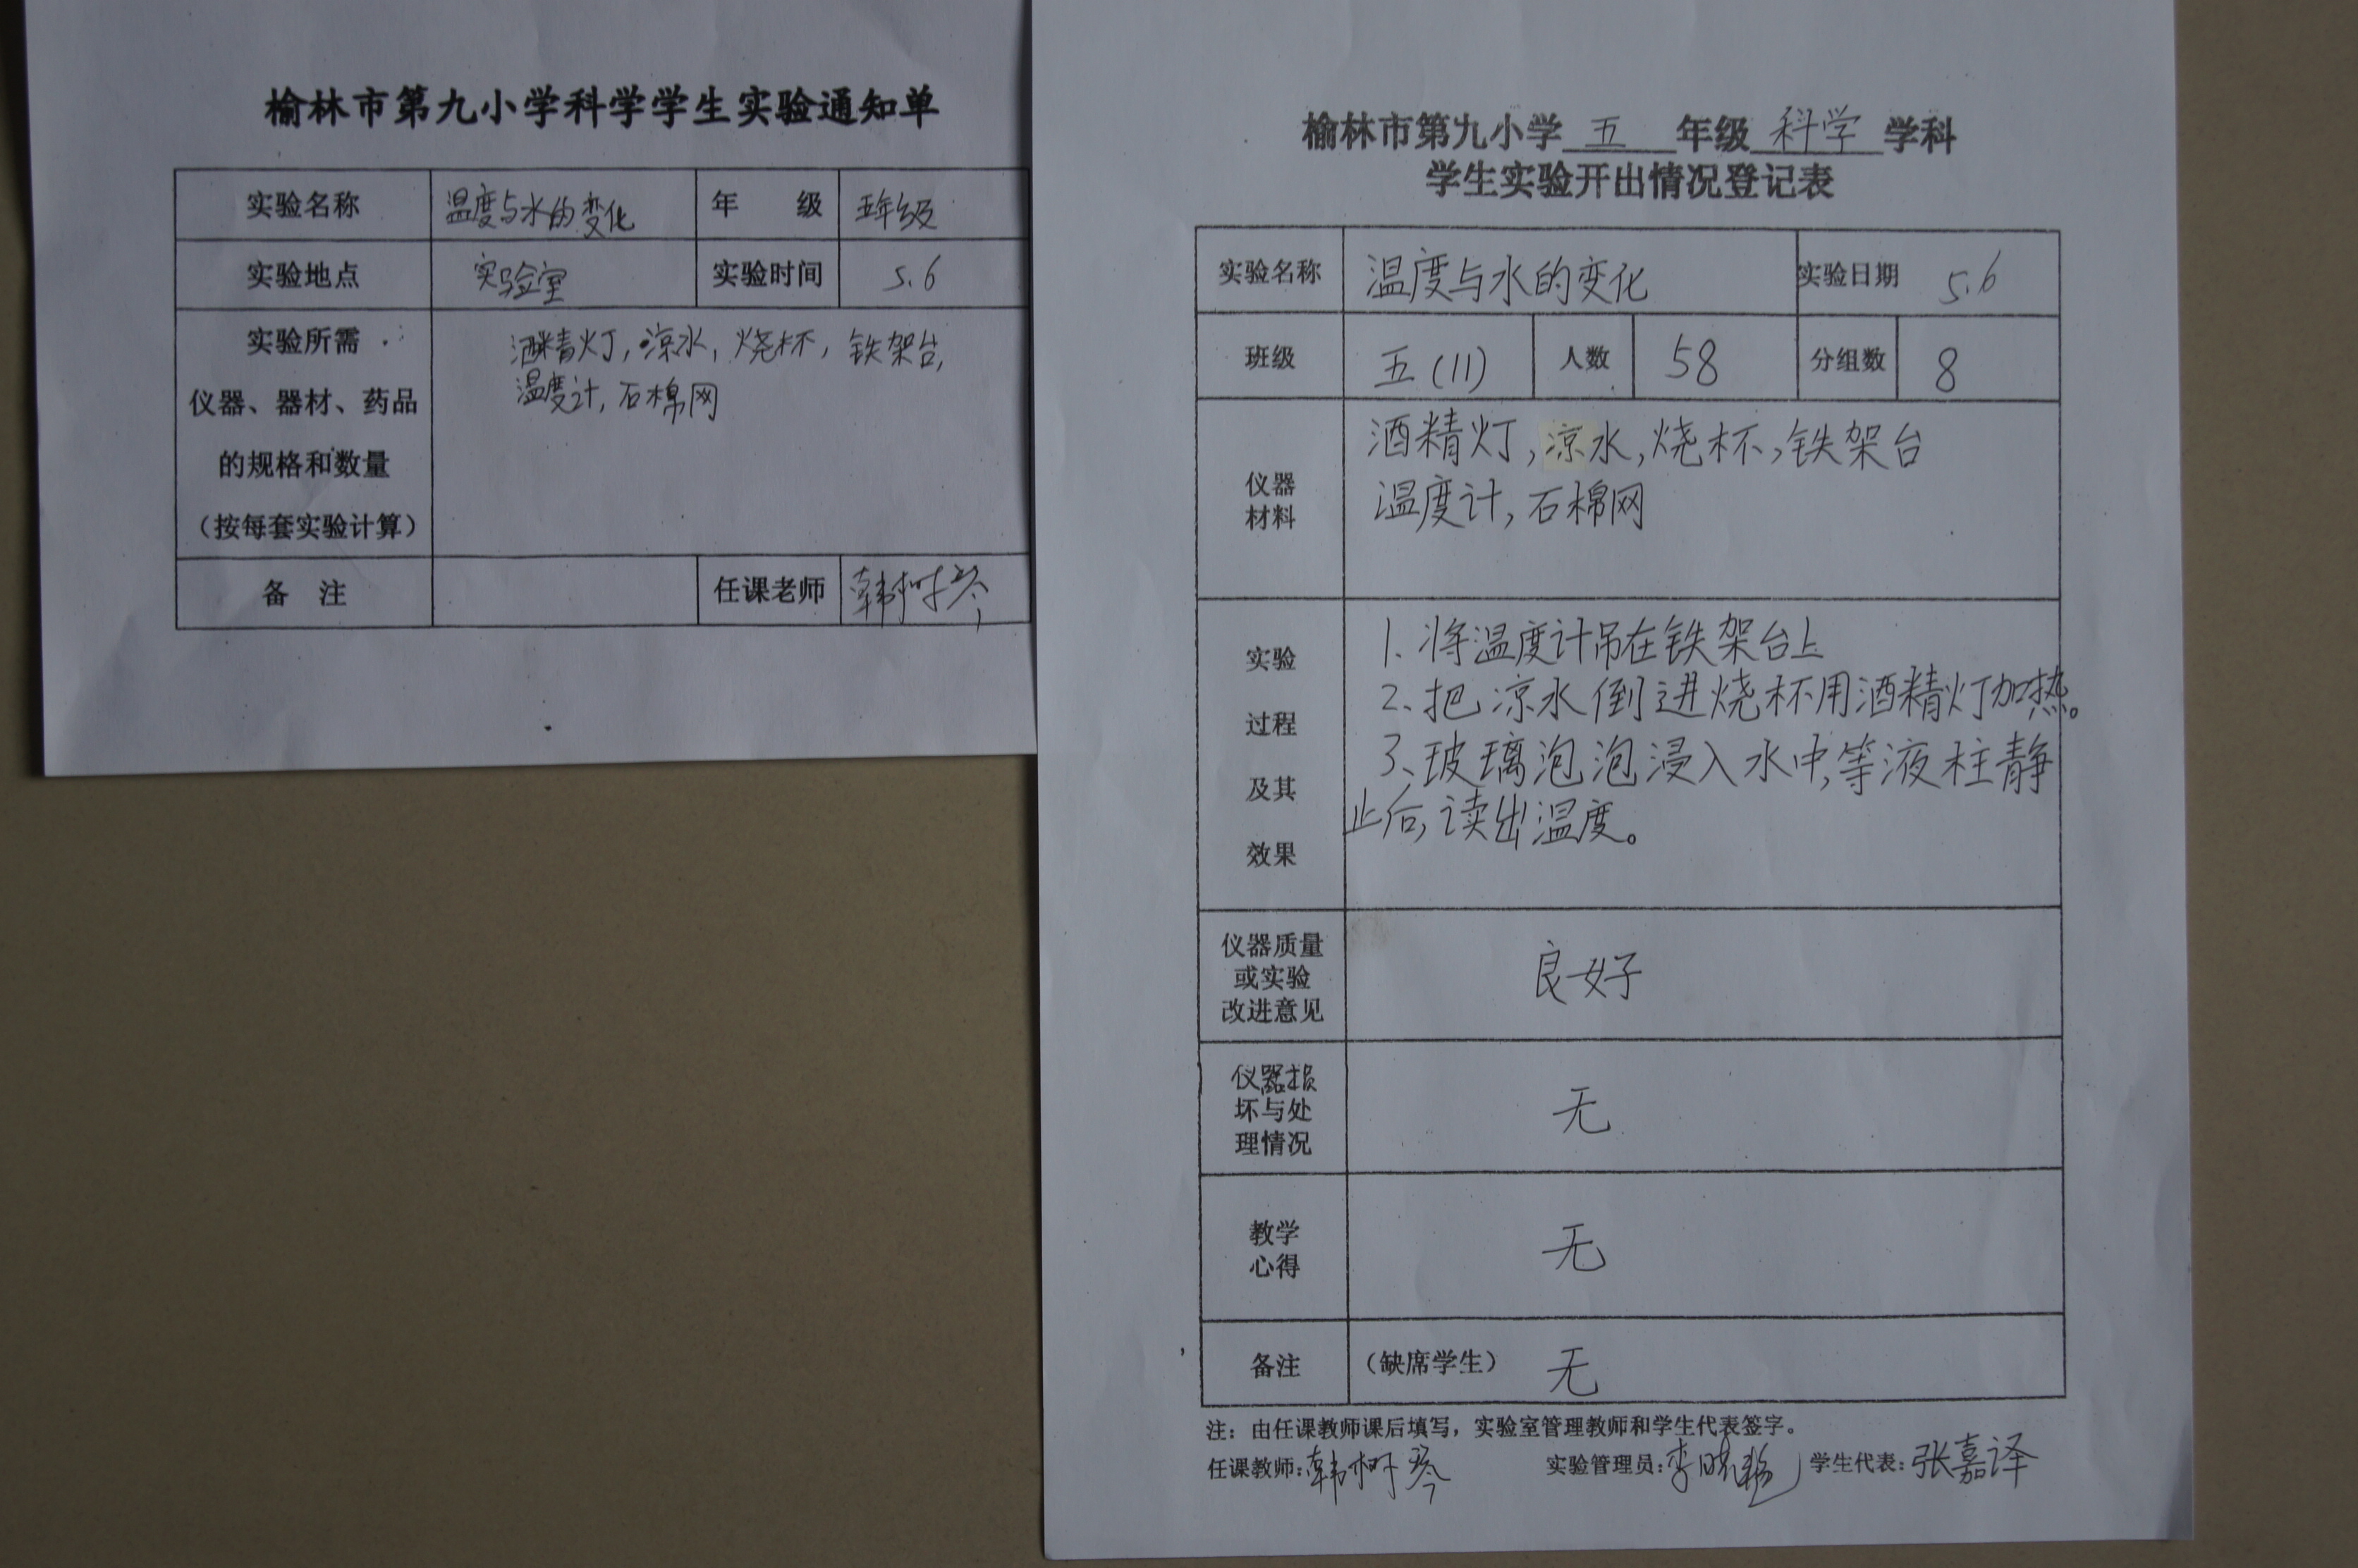 榆林市第九小学科学学生实验通知单
实验名称 温度与水的变化 年 级 五年级
实验地点 实验室 实验时间 5.6
实验所需
仪器、器材、药品
的规格和数量
（按每套实验计算）
酒精灯,凉水,烧杯,铁架台,
温度计,石棉网
备 注 任课老师 韩树琴
榆林市第九小学 五 年级 科学 学科
学生实验开出情况登记表
实验名称 温度与水的变化 实验日期 5.6
班级 五(11) 人数 58 分组数 8
仪器
材料
酒精灯,凉水,烧杯,铁架台
温度计,石棉网
实验
过程
及其
效果
1、将温度计吊在铁架台上
2、把凉水倒进烧杯用酒精灯加热。
3、玻璃泡泡浸入水中,等液柱静
止后,读出温度。
仪器质量
或实验
改进意见
良好
仪器损
坏与处
理情况
无
教学
心得
无
备注 （缺席学生） 无
注：由任课教师课后填写，实验室管理教师和学生代表签字。
任课教师:韩树琴 实验管理员:李晓 学生代表:张嘉译